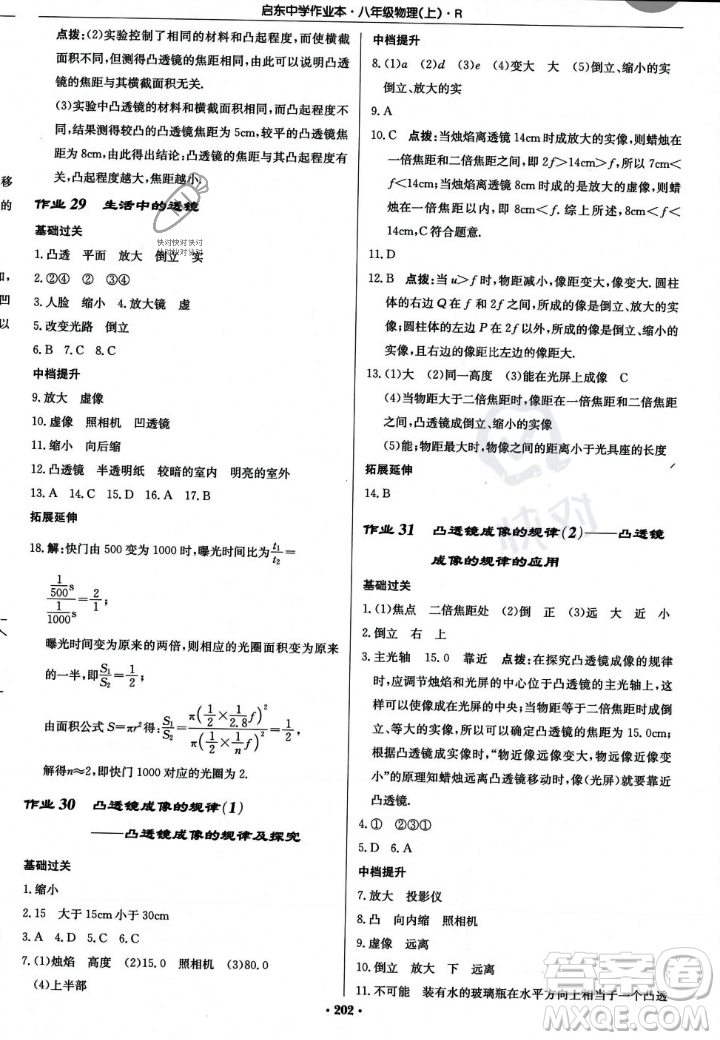 启东中学作业本·八年级物理(上)·R
点拨:(2)实验控制了相同的材料和凸起程度,
结果测得的焦距相同,因此,可以说明凸透
镜的焦距与其横截面积无关.
(3)实验中凸透镜的材料和横截面积相
同,结果测得较凸的凸透镜焦距为5cm,较平
的为8cm,由此得出结论:凸透镜的焦距与凸起程度有关,
且,凸起程度越大,焦距越小.
移
的
如,
凹
以
作业29 生活中的透镜
快对快对快对
快对快对快对
基础过关
1.凸透 平面 放大 倒立 实
2.②④ ②④
3.人脸 缩小 4.放大镜 虚
5.改变光路 倒立
6.B 7.C 8.C
中档提升
9.放大 虚像
10.虚像 照相机 凹透镜
11.缩小 向后缩
12.凸透镜 半透明纸 较暗的室内 明亮的室外
13.A 14.B 15.C 16.A 17.B
拓展延伸
18.解:快门由500变为1000时,曝光时间比为t₁/t₂=
(1/500 s)/(1/1000 s)=2/1;
曝光时间变为原来的两倍,则光圈面积变为原来
的一半,即S₁/S₂=1/2;
由面积公式S=πr²得:S₁/S₂=π(1/2×1/2.8 f)²/π(1/2×1/n f)²=1/2,
解得n≈2,即快门1000对应的光圈为2.
作业30 凸透镜成像的规律(1)
——凸透镜成像的规律及探究
基础过关
1.缩小
2.15 大于15cm小于30cm
3.A 4.D 5.B 6.C
7.(1)烛焰 高度 (2)15.0 照相机 (3)80.0
(4)上半部
中档提升
8.(1)a (2)d (3)e (4)变大 大 (5)倒立、缩小的实
倒立、放大的实
9.A
10.C 点拨:当烛焰离透镜14cm时成放大的实像,则蜡烛在
一倍焦距和二倍焦距之间,即2f>14cm>f,所以7cm<
f<14cm;当烛焰离透镜8cm时成放大的虚像,则蜡
烛在一倍焦距以内,即8cm<f.综上所述,8cm<f<
14cm,C符合题意.
11.D
12.B 点拨:当u>f时,物距减小,像距变大,像变大.圆柱
体的右边Q在f和2f之间,能成倒立、放大的
实像;圆柱体的左边P在2f以外,成倒立、缩小的
实像,右边的像距比左边的像距大.
13.(1)大 (2)同一高度 (3)能在光屏上成像 C
(4)当物距大于二倍焦距时,像距在一倍焦距和二倍焦距
之间,凸透镜成倒立、缩小的实像
(5)能;物距最大时,物像之间的距离小于光具座的长度
拓展延伸
14.B
快对
作业31 凸透镜成像的规律(2)——凸透镜
成像的规律的应用
基础过关
1.(1)焦点 二倍焦距处 (2)倒 正 (3)远 大 近 小
2.倒立 右 上
3.主光轴 15.0 靠近 点拨:在探究凸透镜成像的规律
时,应调节烛焰和光屏的中心位于凸透镜的主光轴上,
这样像能成在光屏的中央;当物距等于二倍焦距时成倒
立、等大的实像,所以可以确定凸透镜的焦距为15.0cm;
根据凸透镜成实像时,“物近像远像变大,物远像近像变
小”的原理知蜡烛远离凸透镜移动时,像(光屏)就要靠近
凸透镜.
4.① ②③①
5.D 6.A
中档提升
7.放大 投影仪
8.凸 向内缩 照相机
9.虚像 远离
10.倒立 放大 下 远离
11.不可能 装有水的玻璃瓶在水平方向上相当于一个凸透
·202·
答案圈
MXQE.COM